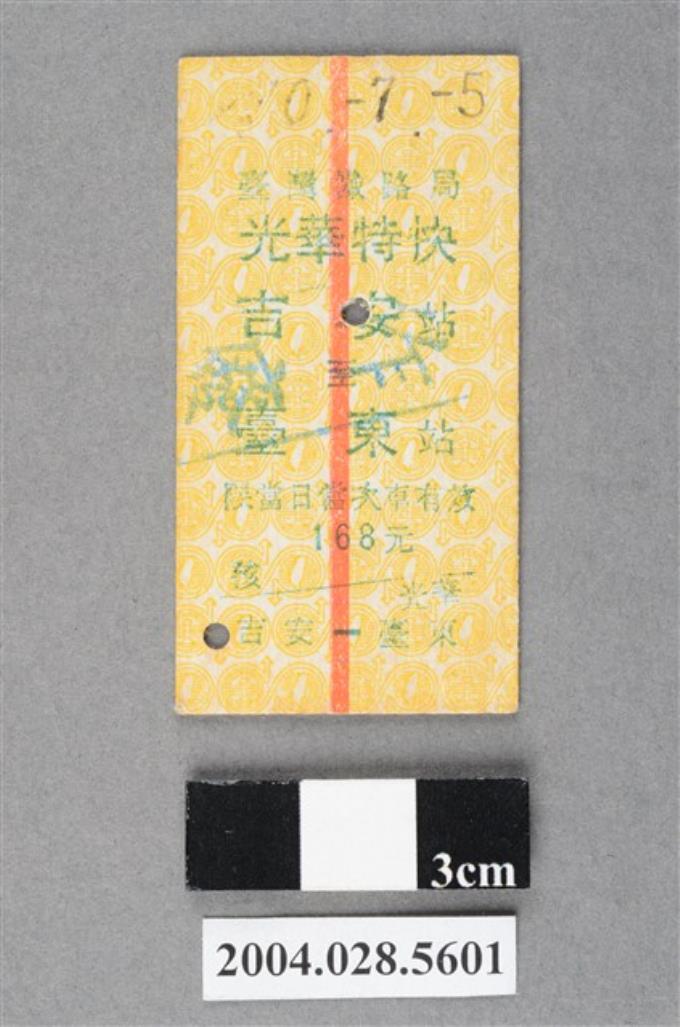 70 -7 -5
臺灣鐵路局
光華特快
吉安站
至
臺東站
供當日當次車有效
168元
核
光華
吉安－臺東
3cm
2004.028.5601